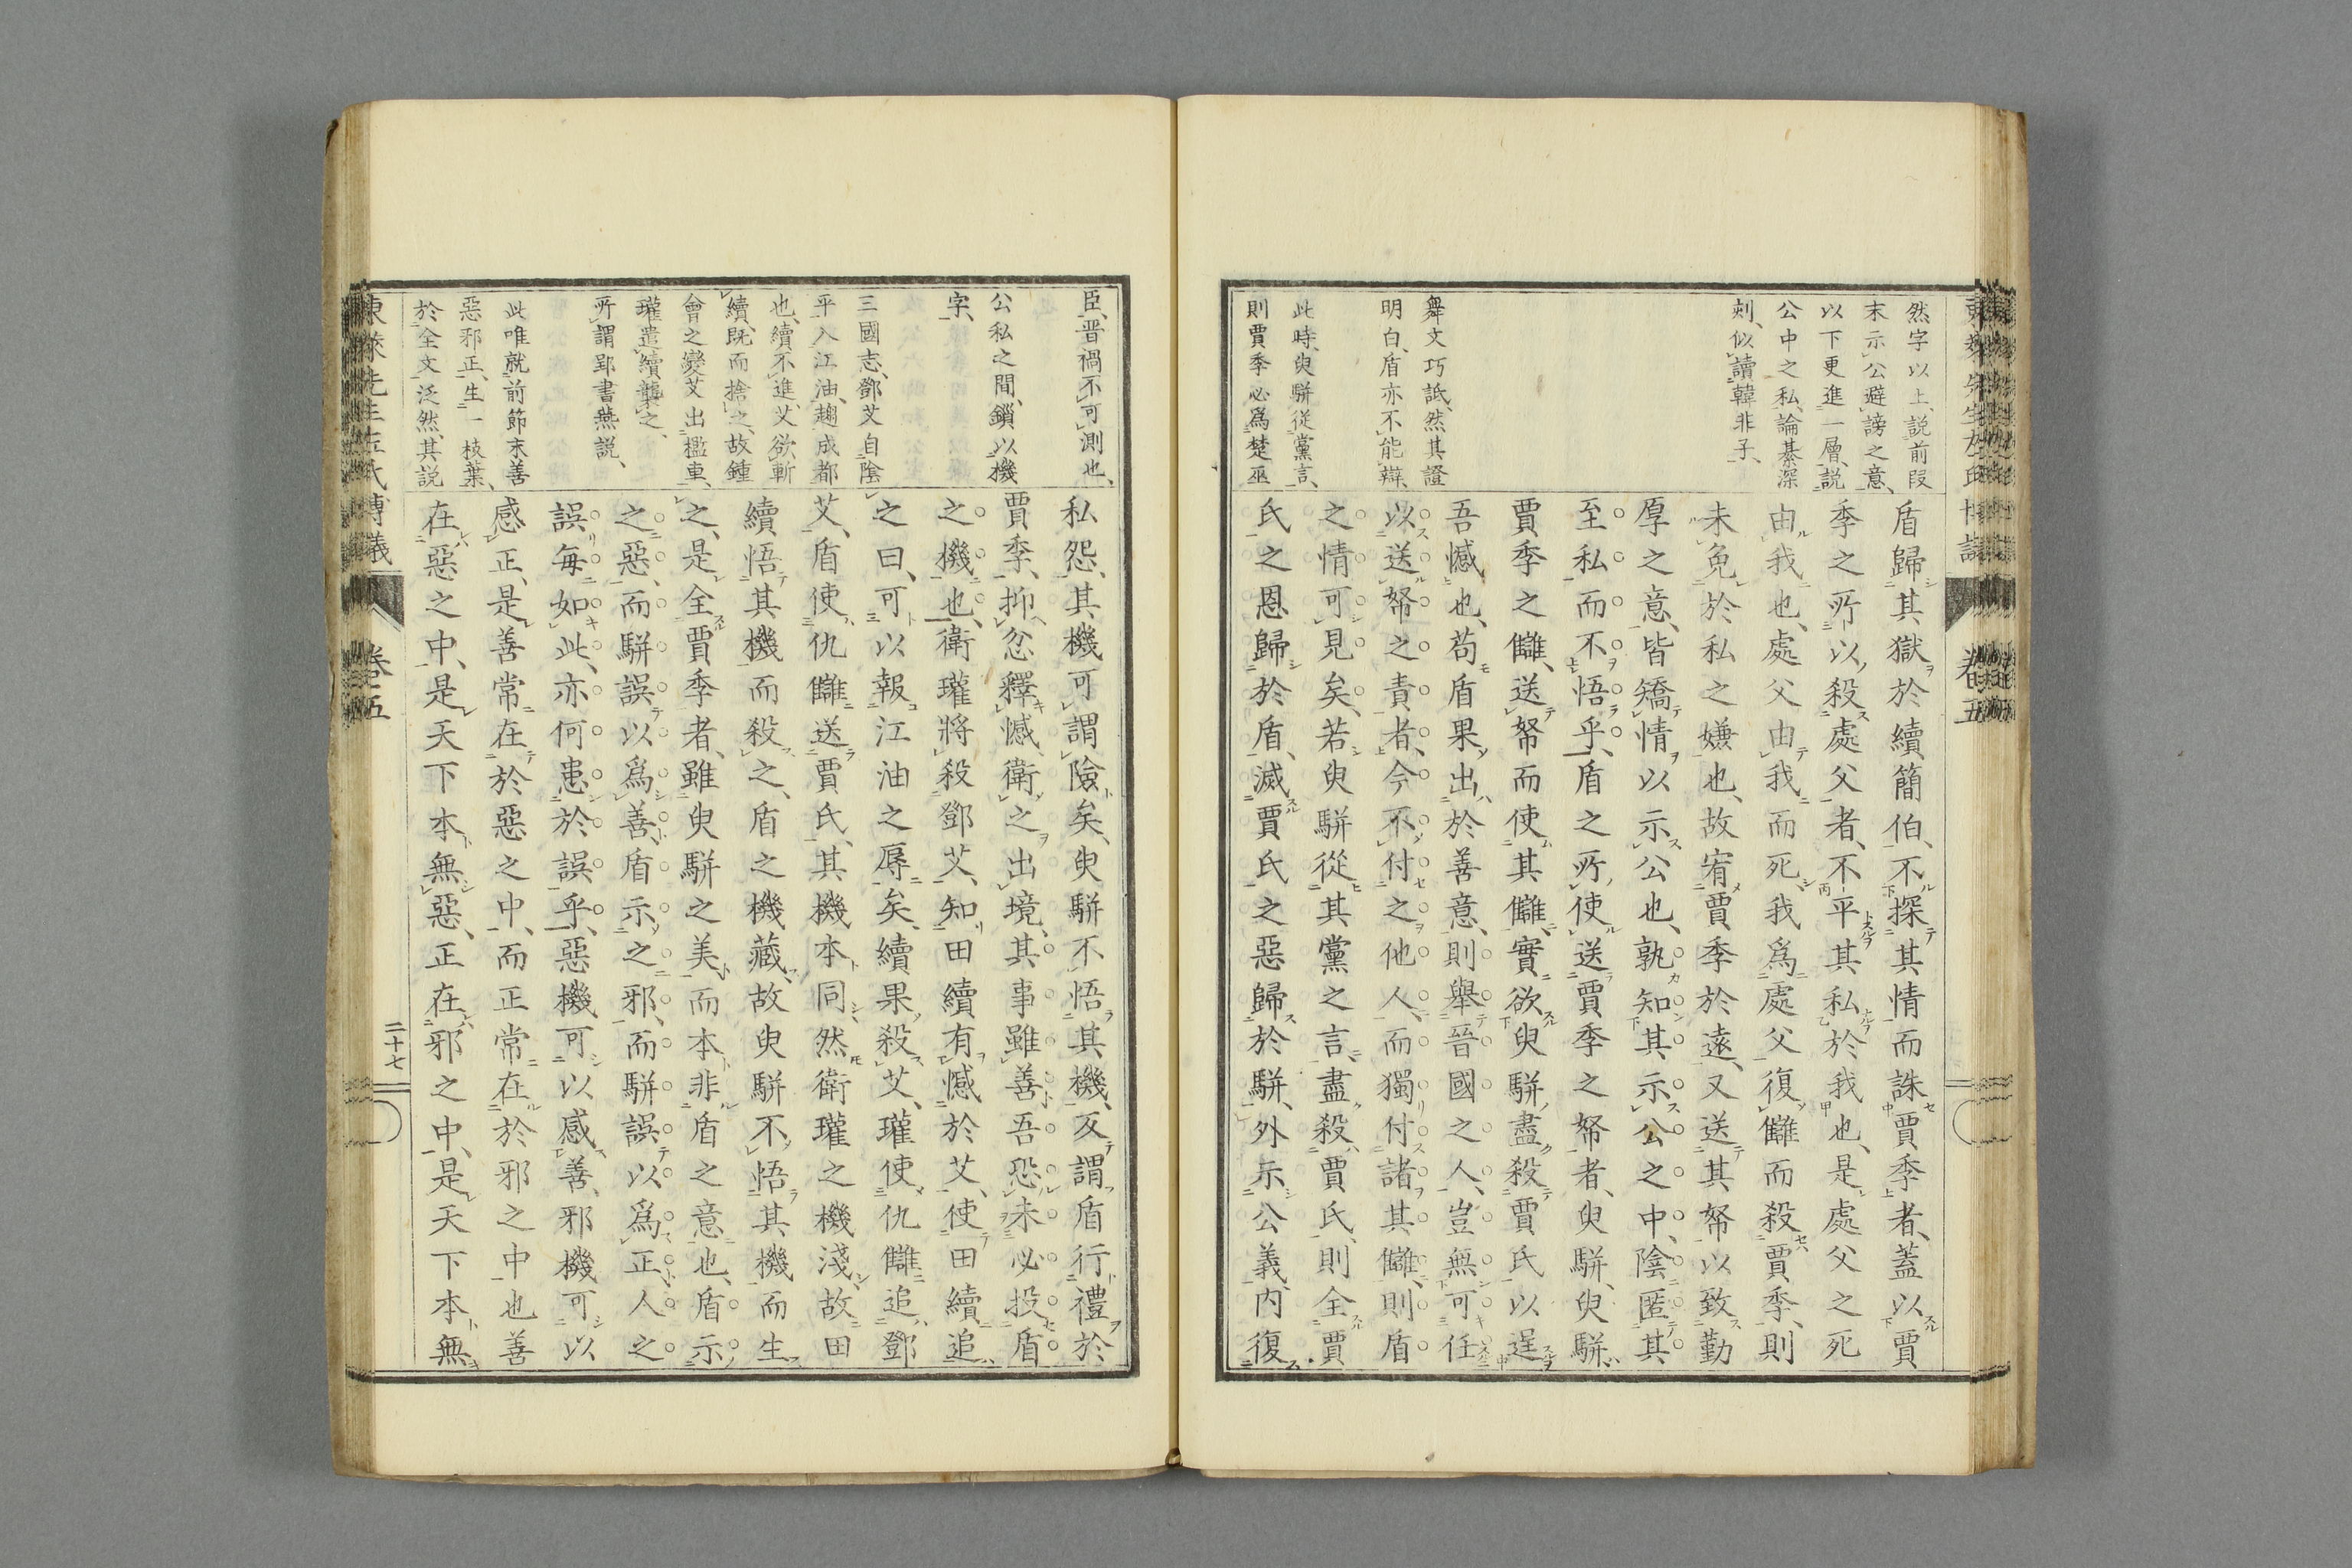 然字以上、説前段
末示公避謗之意、
以下更進一層、説
公中之私、論綦深
刻、似讀韓非子、
舞文巧詆、然其證
明白、盾亦不能辯、
此時、臾駢從黨言、
則賈季必爲楚巫
盾歸其獄於續簡伯、不探其情而誅賈季者、蓋以賈
季之所以殺處父者、不平其私於我也、是處父之死
由我也、處父由我而死、我爲處父復讎而殺賈季、則
未免於私之嫌也、故宥賈季於遠、又送其帑以致勤
厚之意、皆矯情以示公也、孰知其示公之中、陰匿其
至私而不悟乎、盾之所使送賈季之帑者、臾駢、臾駢、
賈季之讎、送帑而使其讎、實欲臾駢盡殺賈氏以逞
吾憾也、苟盾果出於善意、則舉晉國之人、豈無可任
以送帑之責者、今不付之他人、而獨付諸其讎、則盾
之情可見矣、若臾駢從其黨之言、盡殺賈氏、則全賈
氏之恩歸於盾、滅賈氏之惡歸於駢、外示公義、内復
臣、晋禍不可測也、
公私之間、鎖以機
字、
三國志、鄧艾自陰
平入江油、趨成都
也、續不進、艾欲斬
續、既而捨之、故鍾
會之變艾出檻車、
瓘遣續襲之、
所謂郢書燕説、
此唯就前節末善
惡邪正、生一枝葉、
於全文泛然、其説
私怨、其機可謂險矣、臾駢不悟其機、反謂盾行禮於
賈季、抑忿釋憾、衛之出境、其事雖善、吾恐未必投盾
之機也、衛瓘將殺鄧艾、知田續有憾於艾、使田續追
之曰、可以報江油之辱矣、續果殺艾、瓘使仇讎追鄧
艾、盾使仇讎送賈氏、其機本同、然衛瓘之機淺、故田
續悟其機而殺之、盾之機藏、故臾駢不悟其機而生
之、是全賈季者、雖臾駢之美、而本非盾之意也、盾示
之惡、而駢誤以爲善、盾示之邪、而駢誤以爲正、人之
誤毎如此、亦何患於誤乎、惡機可以感善、邪機可以
感正、是善常在於惡之中、而正常在於邪之中也善
在惡之中、是天下本無惡、正在邪之中、是天下本無
東萊先生左氏博議
卷五
二十七